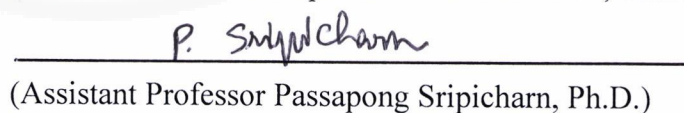 P. Sripicharn
(Assistant Professor Passapong Sripicharn, Ph.D.)